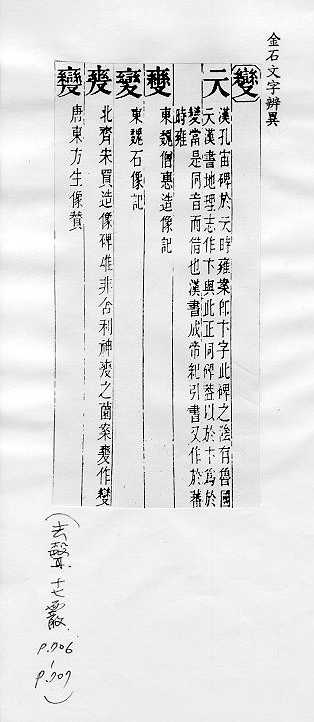 金石文字辨異
變
𠫓 漢孔宙碑於𠫓時雍案即卞字此碑之陰有魯國
卞漢書地理志作卞與此正同碑葢以於卞爲於
變當是同音而借也漢書成帝紀引書又作於蕃
時雍
東魏僧惠造像記
東魏石像記
北齊宋買造像碑雄非舍利神變之菌案變作變
唐東方生像贊
(去聲十七霰
P.706
P.707)